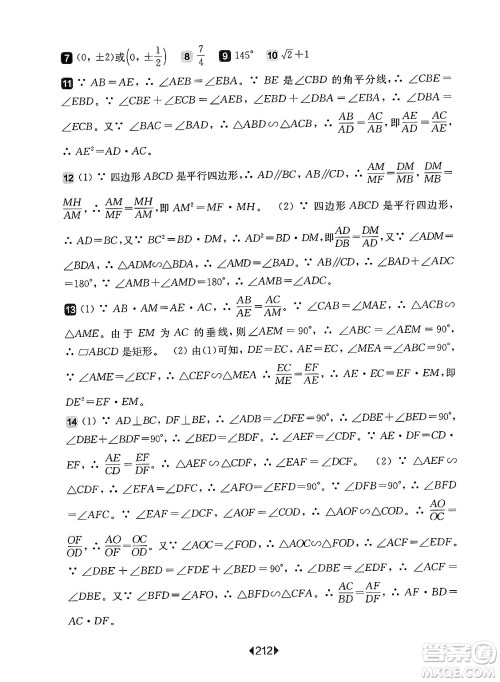 7 (0, ±2)或(0, ±1/2) 8 7/4 9 145° 10 √2+1
11 ∵ AB=AE, ∴ ∠AEB=∠EBA. ∵ BE 是∠CBD 的角平分线, ∴ ∠CBE=
∠EBD. 又∵ ∠BAC=∠BAD, ∴ △ABC∽△ADB, ∴ AB/AD=AC/AB, 即AE/AD=AC/AE,
∴ AE²=AD·AC.
12 (1) ∵ 四边形 ABCD 是平行四边形, ∴ AD∥BC, AB∥CD, ∴ AM/MF=DM/MB,DM/MB=
MH/AM, ∴ AM/MF=MH/AM, 即 AM²=MF·MH. (2) ∵ 四边形 ABCD 是平行四边形,
∴ AD=BC. 又∵ BC²=BD·DM, ∴ AD²=BD·DM, 即AD/DB=DM/AD. 又∵ ∠ADM=
∠BDA, ∴ △ADM∽△BDA, ∴ ∠AMD=∠BAD. ∵ AB∥CD, ∴ ∠BAD+∠ADC
=180°, ∴ ∠AMB+∠AMD=180°, ∴ ∠AMB=∠ADC.
13 (1) ∵ AB·AM=AE·AC, ∴ AB/AE=AC/AM. 又∵ ∠CAB=∠MAE, ∴ △ACB∽
△AME. 由于 EM 为 AC 的垂线, 则∠AEM=90°, ∴ ∠ABC=∠AEM=90°,
∴ ▱ABCD 是矩形. (2) 由(1)可知, DE=EC, ∠MEA=∠DEC=90°. ∵ △ACB∽△AME,
∴ ∠AME=∠ECF, ∴ △AME∽△FCE, ∴ EC/ME=EF/AE, ∴ AE·EC=ME·EF, 即
DE²=EF·EM.
14 (1) ∵ AD⊥BC, DF⊥BE, ∴ ∠ADB=∠DFE=90°, ∴ ∠DBE+∠BED=90°,
∠DBE+∠BDF=90°, ∴ ∠BED=∠BDF, ∴ ∠AEF=∠CDF. 又∵ ∠DAF+
∠EDF, ∴ AE/CD=EF/DF, ∴ △AEF∽△CDF. (2) ∵ △AEF∽
△CDF, ∴ ∠AFE=∠CFD, ∴ ∠AFO=∠EFD=90°. ∵ △AEF∽△CDF, ∠BFD
=∠AFC=90°. 又∵ ∠AOF=∠COD, ∴ △AOF∽△COD, ∴ AO/OC=
OF/OD, ∴ AO/OF=OC/OD. 又∵ ∠AOC=∠FOD, ∴ △AOC∽△FOD, ∴ ∠ACO=∠FDO.
∵ ∠DBE=∠FDE, ∴ ∠DBE=∠ACF, ∴ △AFC∽△DFB, ∴ AC/BD=AF/DF, ∴ AC·DF=
BD·AF
212
答案圈
MXQE.COM